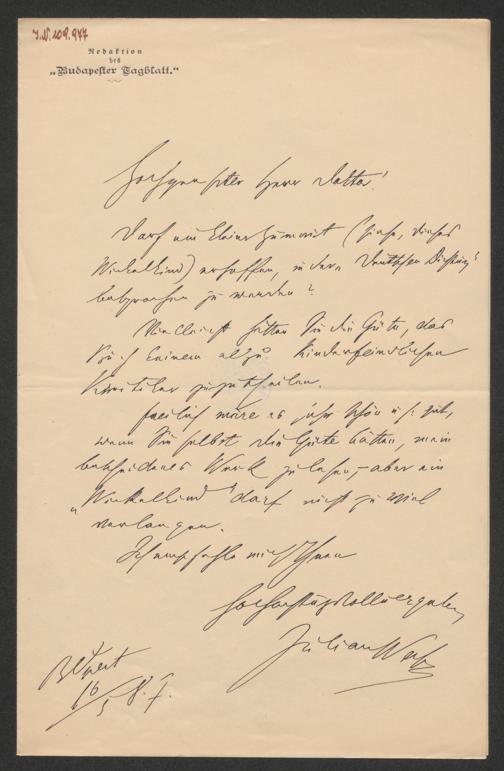 I.N. 109.977
Redaktion
des
„Budapester Tagblatt.“
Hochgeehrter Herr Doktor!
Darf ein kleiner Humorist (siehe, dieses
Winkelkind) erhoffen, in der „Deutschen Dichtung“
besprochen zu werden?
Vielleicht hätten Sie die Güte, das
Buch keinem allzu kinderfeindlichen
Kritiker zuzutheilen.
Freilich wäre es sehr schön u. gut,
wenn Sie selbst die Güte hätten, mein
bescheidenes Werk zu lesen, – aber ein
„Winkelkind“ darf nicht zu viel
verlangen.
Ich empfehle mich Ihnen
hochachtungsvoll ergeben
Julian Weiß
Bdpest
16/5 87.